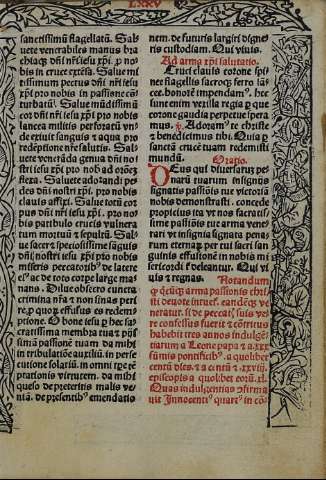 LXXV
sanctissimũ flagellatũ. Sal⸗
uete venerabiles manus bra
chiaq; dñi nr̃i iesu xp̃i. p no⸗
bis in cruce extẽsa. Salue mi
tissimum pectus dñi nr̃i iesu
xp̃i pro nobis in passione cõ⸗
turbatũ. Salue mũdissimũ
cor dñi nr̃i iesu xp̃i pro nobis
lancea militis perforatũ vn⸗
de exiuit sanguis & aqua pro
redẽptione nr̃e salutis. Sal⸗
uete venerãda genua dñi no⸗
stri iesu xp̃i pro nobis ad
flexa. Saluete adorandi pe⸗
des dñi nostri iesu xp̃i. pro nobis
clauis affixi. Salue totũ cor
pus dñi nr̃i iesu xp̃i. pro no⸗
bis patibulo crucis vulnera
tum mortuũ & sepultũ. Sal⸗
ue sacer & speciosissime sãguis
dñi nostri iesu xp̃i pro nobis
miseris peccatorib9 de latere
& de toto corpe large ma⸗
nans. Dilue obsecro cuncta
crimina nr̃a & non sinas peri
re.p quos effusus es redem⸗
ptione. O bone iesu p hec sa⸗
cratissima membra tua & pas⸗
sionẽ tuam da mihi
in tribulatiõe auxiliũ.in perse
cutione solatiũ.in omni tpe tẽ
ptationis virtutem. da mihi
queso de preteritis malis ve
niã. de presentib9 emendatio
nem. de futuris largiri digne⸗
ris custodiam. Qui viuis.
Ad arma xp̃i salutatio.
CRuci clauis corone spi⸗
nee flagellis sacroq; ferro lã⸗
cee. honorẽ impendam9. hec
sunt enim vexilla regis p que
corone gaudia perpetue ipera
mus. v. Adoram9 te christe
& bñdicimus tibi. Quia p
sanctã crucẽ tuam redemisti
mundũ. Oratio.
DEus qui diuersarũ pe⸗
narũ tuarum insignia
signatis passiõis tue victoriã
nobis demonstrasti. concede
propicius ita vt nos sacratis⸗
sime passiõis tue arma vene⸗
rari vt insignia signata pena⸗
rum eternarũ per tui sacri san
guinis effusionẽ in nobis mi
sericordi9 deleantur. Qui vi
uis & regnas. Notandum
q̃ arma passionis chri
sti deuote intuet̃. eandẽq; ve⸗
neratur. si de peccatis suis ve
re confessus fuerit & cõtritus
habebit tres annos indulgẽ
tiarum a Leone papa & a xxx
sũmis põtificib9. a quolibet
centũ dies. & a centũ & xxviij.
episcopis a quolibet eorũ. xl.
Quas indulgẽtias cõfirma
uit Innocenti9 quart9 in cõ⸗